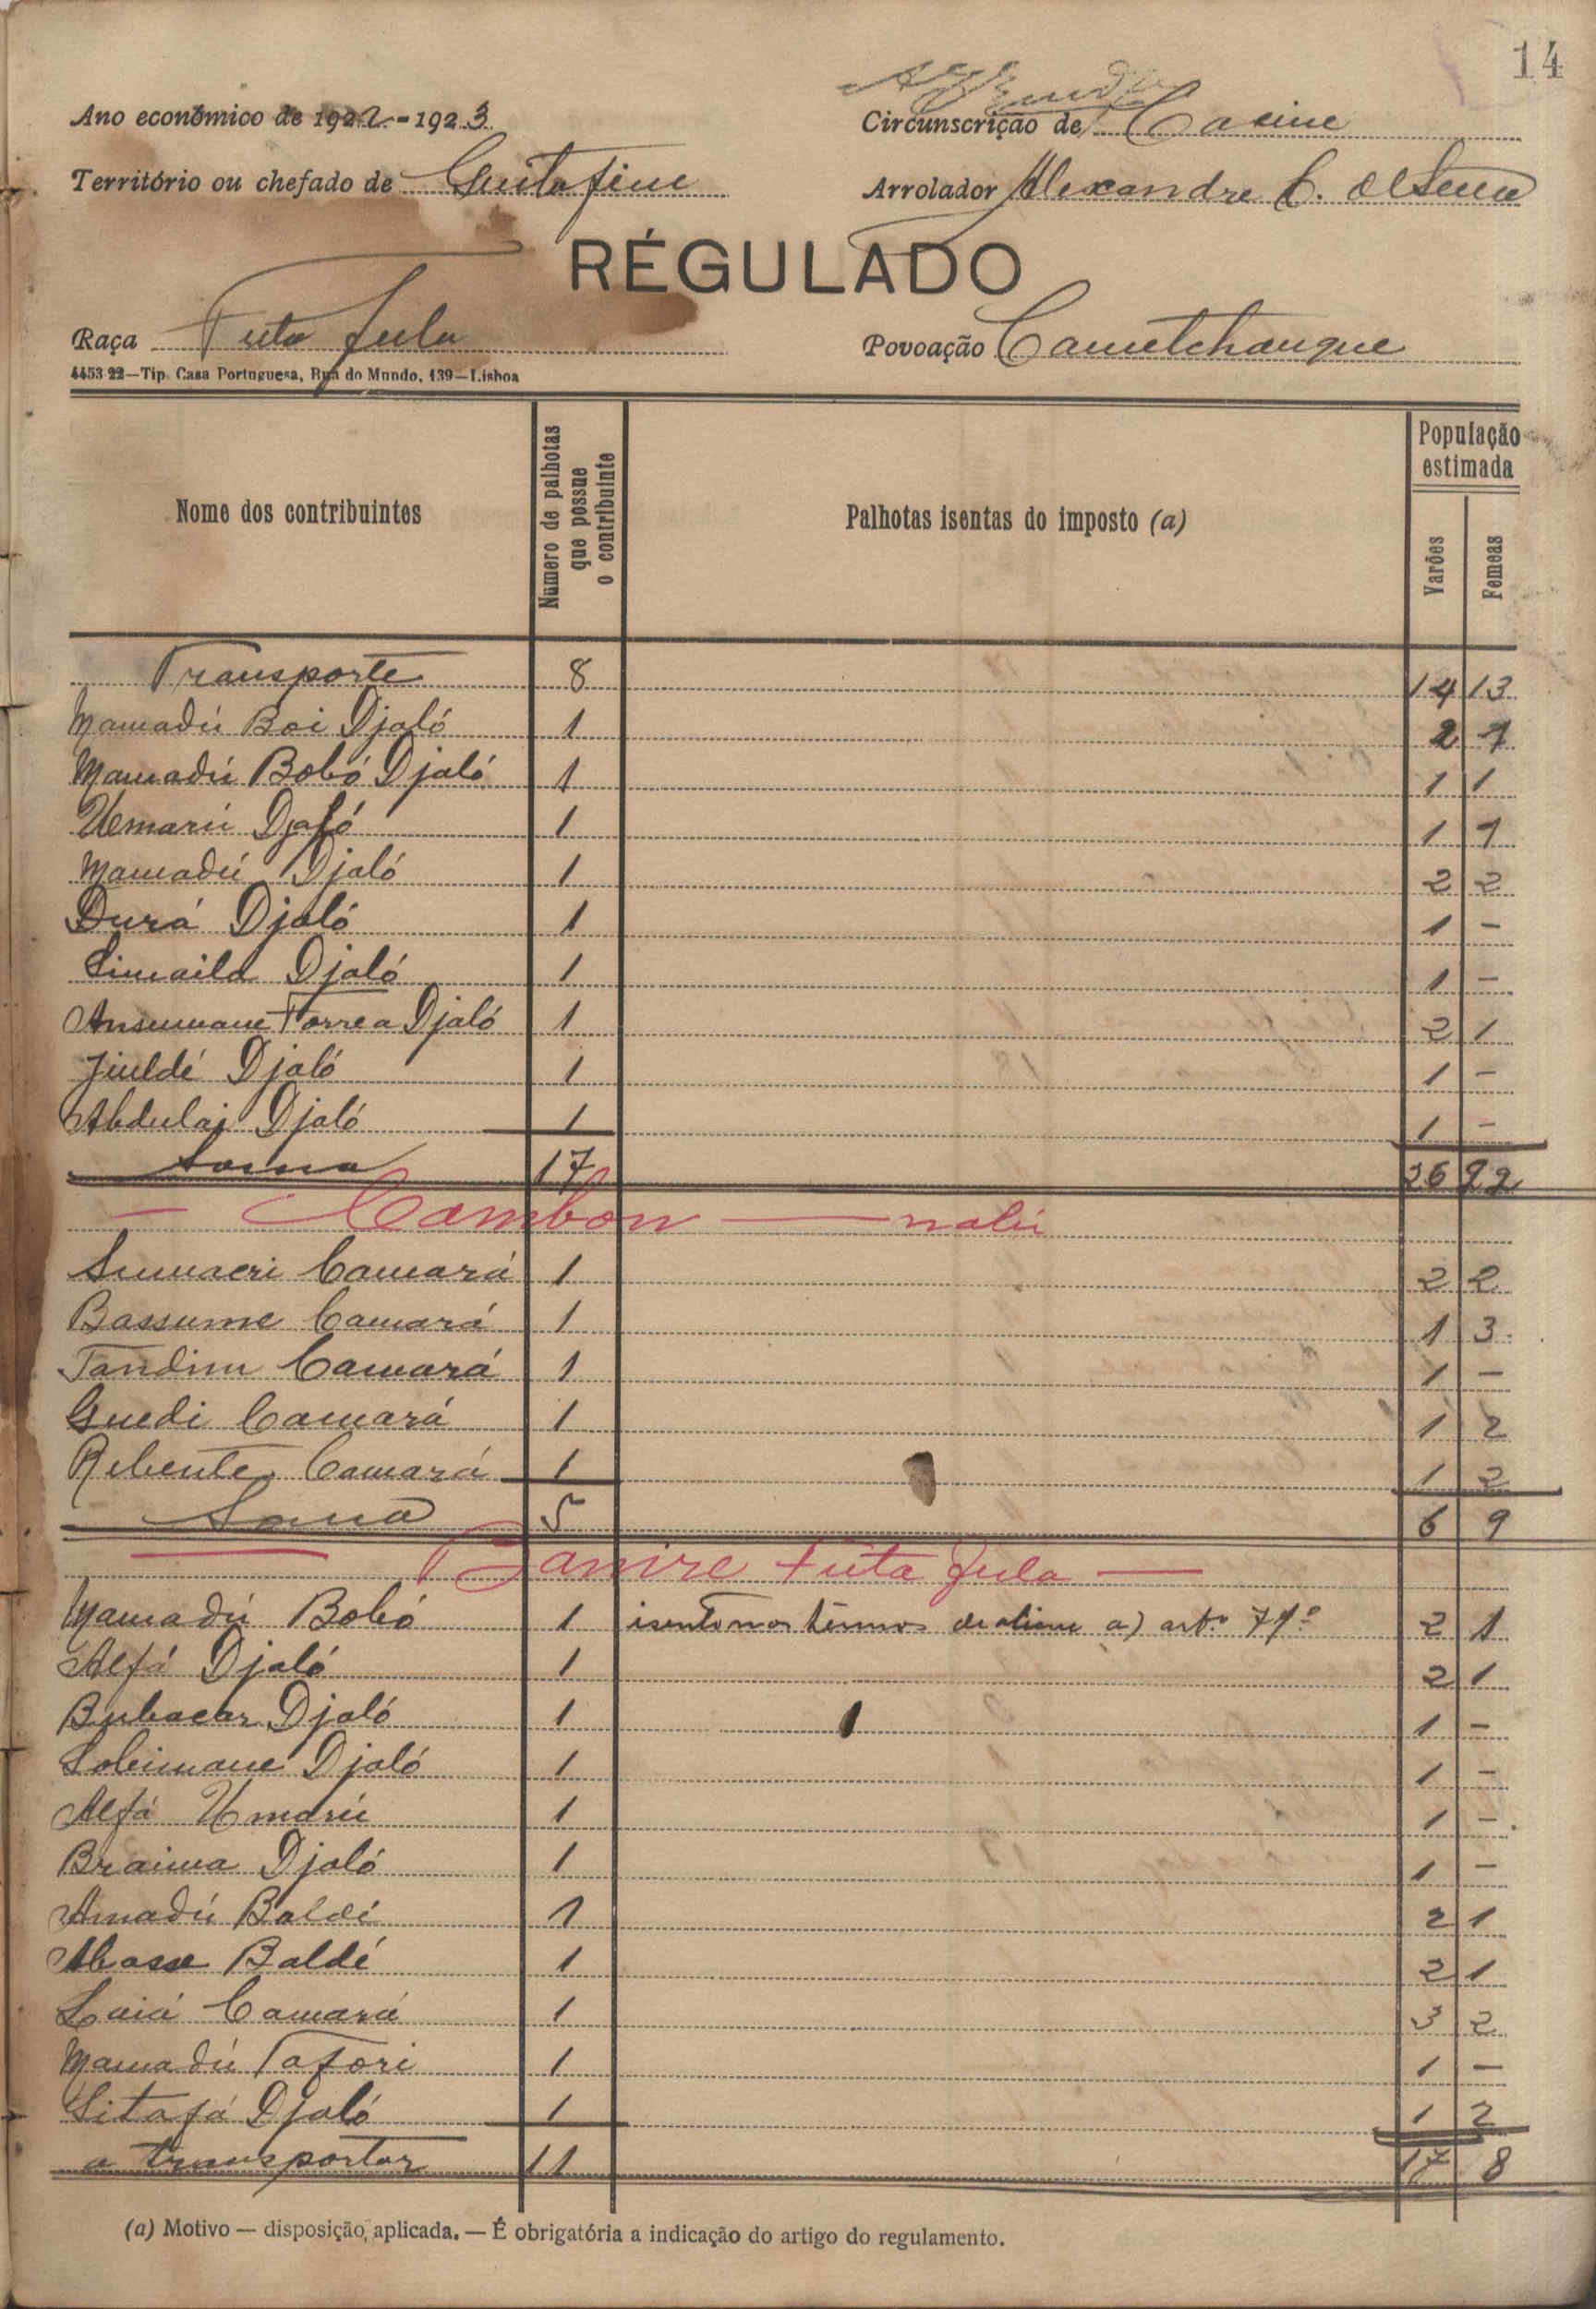 14
Ano económico de 1922-1923
Circunscrição de Cacine
Território ou chefado de Guitafine
Arrolador Alexandre C. de Sena
RÉGULADO
Raça Futa fula
Povoação Cametchanque
4453 22—Tip. Casa Portuguesa, Rua do Mundo, 139—Lisboa
Nome dos contribuintes
Número de palhotas que possue o contribuinte
Palhotas isentas do imposto (a)
População estimada
Varões
Femeas
Transporte 8 14 13
Mamadú Boi Djaló 1 2 1
Mamadú Bobó Djaló 1 1 1
Umarú Djaló 1 1 1
Mamadú Djaló 1 2 2
Durá Djaló 1 1 -
Simaila Djaló 1 1 -
Ansumane Torrea Djaló 1 2 1
Jiuldé Djaló 1 1 -
Abdulai Djaló 1 1 -
Soma 17 26 22
— Cambon — nalú
Sumacri Camará 1 2 2
Bassume Camará 1 1 3
Tandim Camará 1 1 -
Guedi Camará 1 1 2
Rebente Camará 1 1 2
Soma 5 6 9
— Banire Futa fula —
Mamadú Bobó 1 isento nos termos da alinea a) artº 77º 2 1
Alfá Djaló 1 2 1
Bubacar Djaló 1 1 -
Soleimane Djaló 1 1 -
Alfá Umarú 1 1 -
Braima Djaló 1 1 -
Amadú Baldé 1 2 1
Abasse Baldé 1 2 1
Laiá Camará 1 3 2
Mamadú Tafori 1 1 -
Sitafá Djaló 1 1 2
a transportar 11 17 8
(a) Motivo — disposição, aplicada. — É obrigatória a indicação do artigo do regulamento.